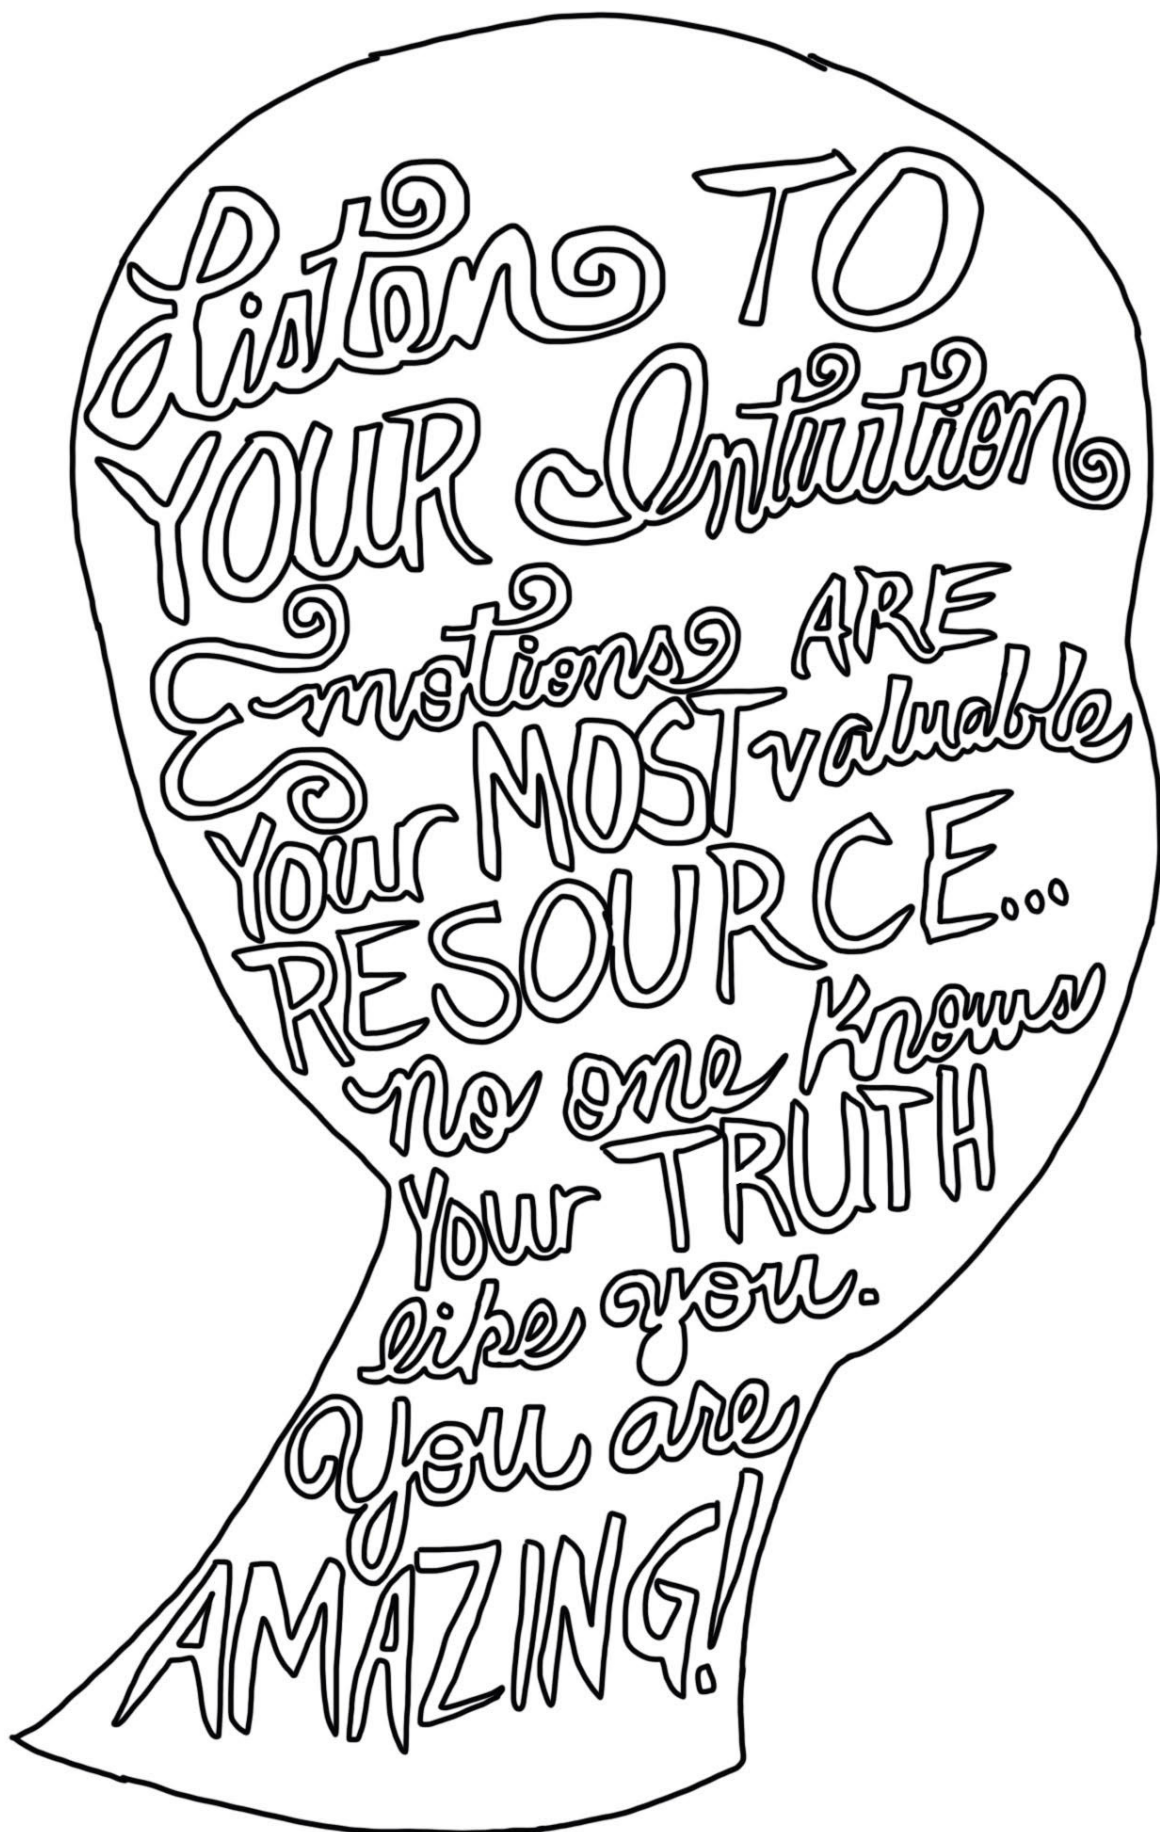 Listen TO
YOUR Intuition
Emotions ARE
Your MOST valuable
RESOURCE...
no one knows
Your TRUTH
like you.
you are
AMAZING!